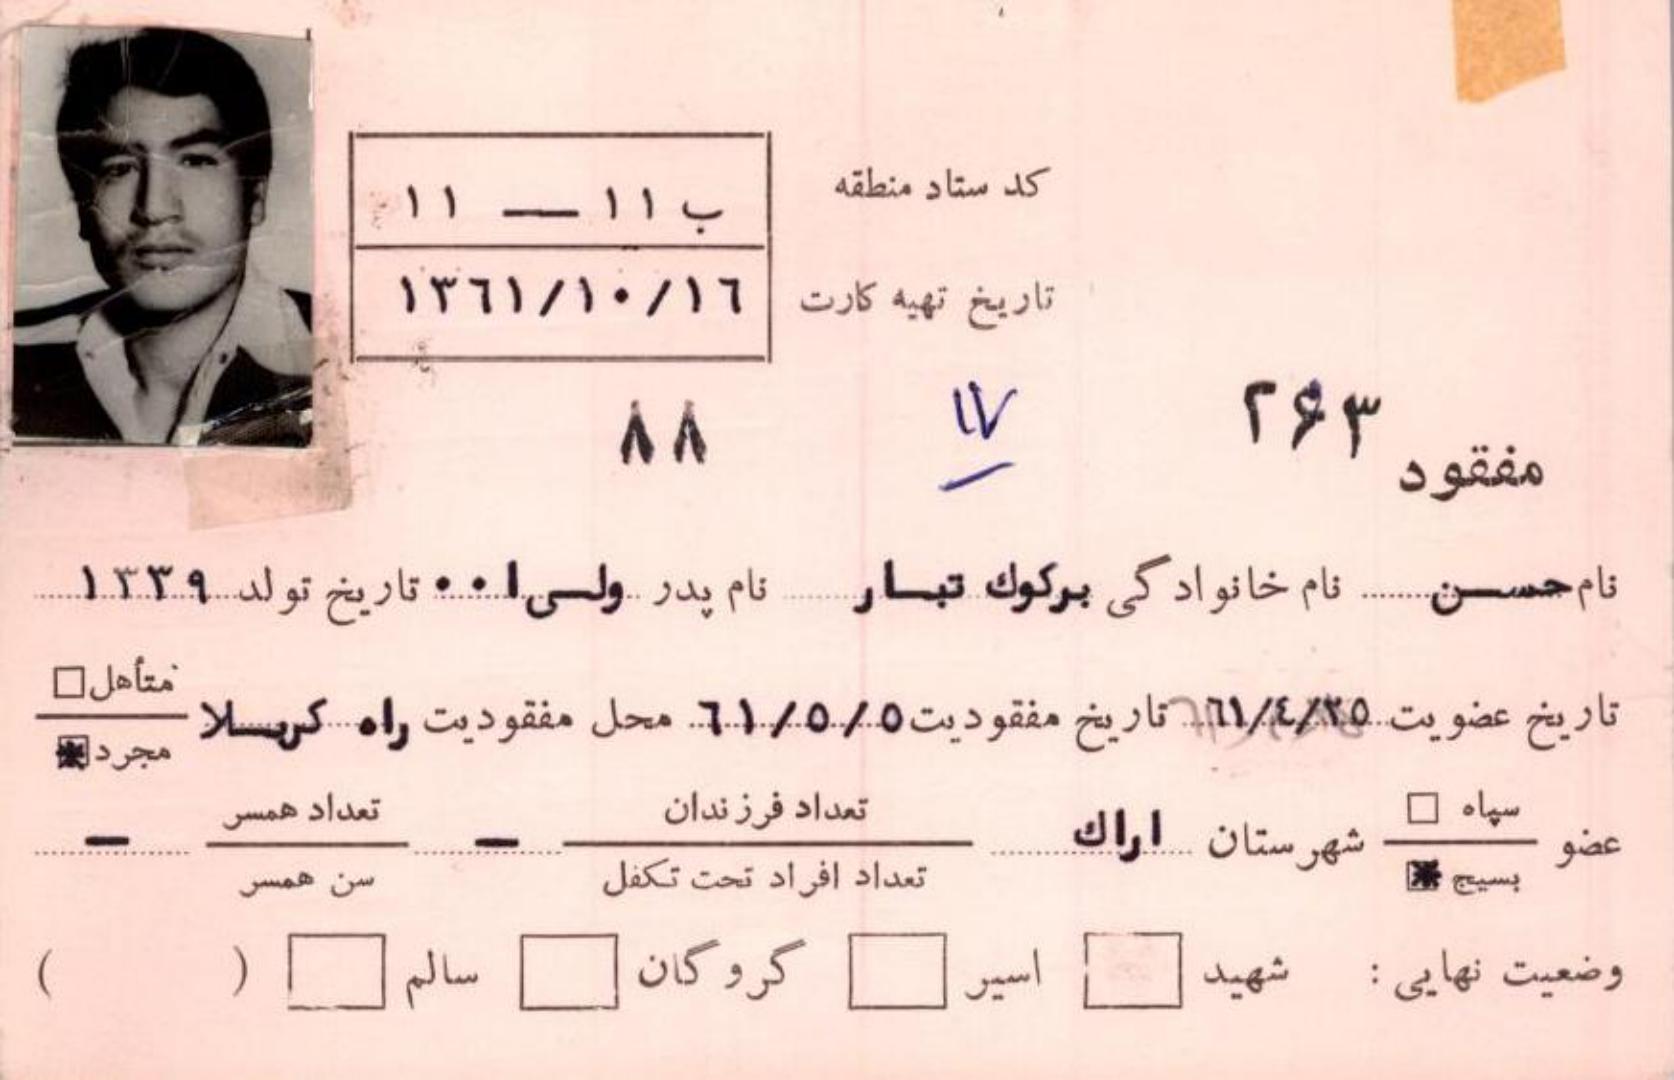 کد ستاد منطقه ب ۱۱ — ۱۱
تاریخ تهیه کارت ۱۳۶۱/۱۰/۱۶
مفقود ۲۶۳ ۱۷ ۸۸
نام حسن نام خانوادگی برکوك تبار نام پدر ولی ا۰۰ تاریخ تولد ۱۳۳۹
تاریخ عضویت ۶۱/۴/۲۵ تاریخ مفقودیت ۶۱/۵/۵ محل مفقودیت راه کربلا متأهل
مجرد
عضو سپاه شهرستان اراك تعداد فرزندان — تعداد همسر —
بسیج تعداد افراد تحت تکفل سن همسر
وضعیت نهایی : شهید اسیر گروگان سالم ( )